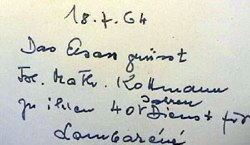 18.7.64
Das
Frl. Math. Kottmann
zu ihren 40 Jahren Dienst für
Lambaréné